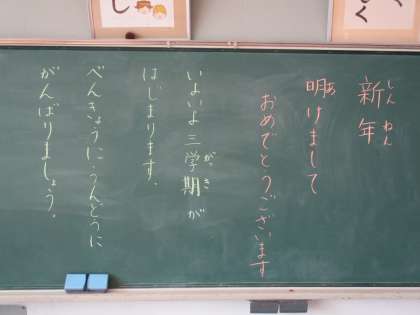 新年
しんねん
明けまして
あ
おめでとうございます
いよいよ三学期が
がっき
はじまります。
べんきょうに、うんどうに
がんばりましょう。
し
く